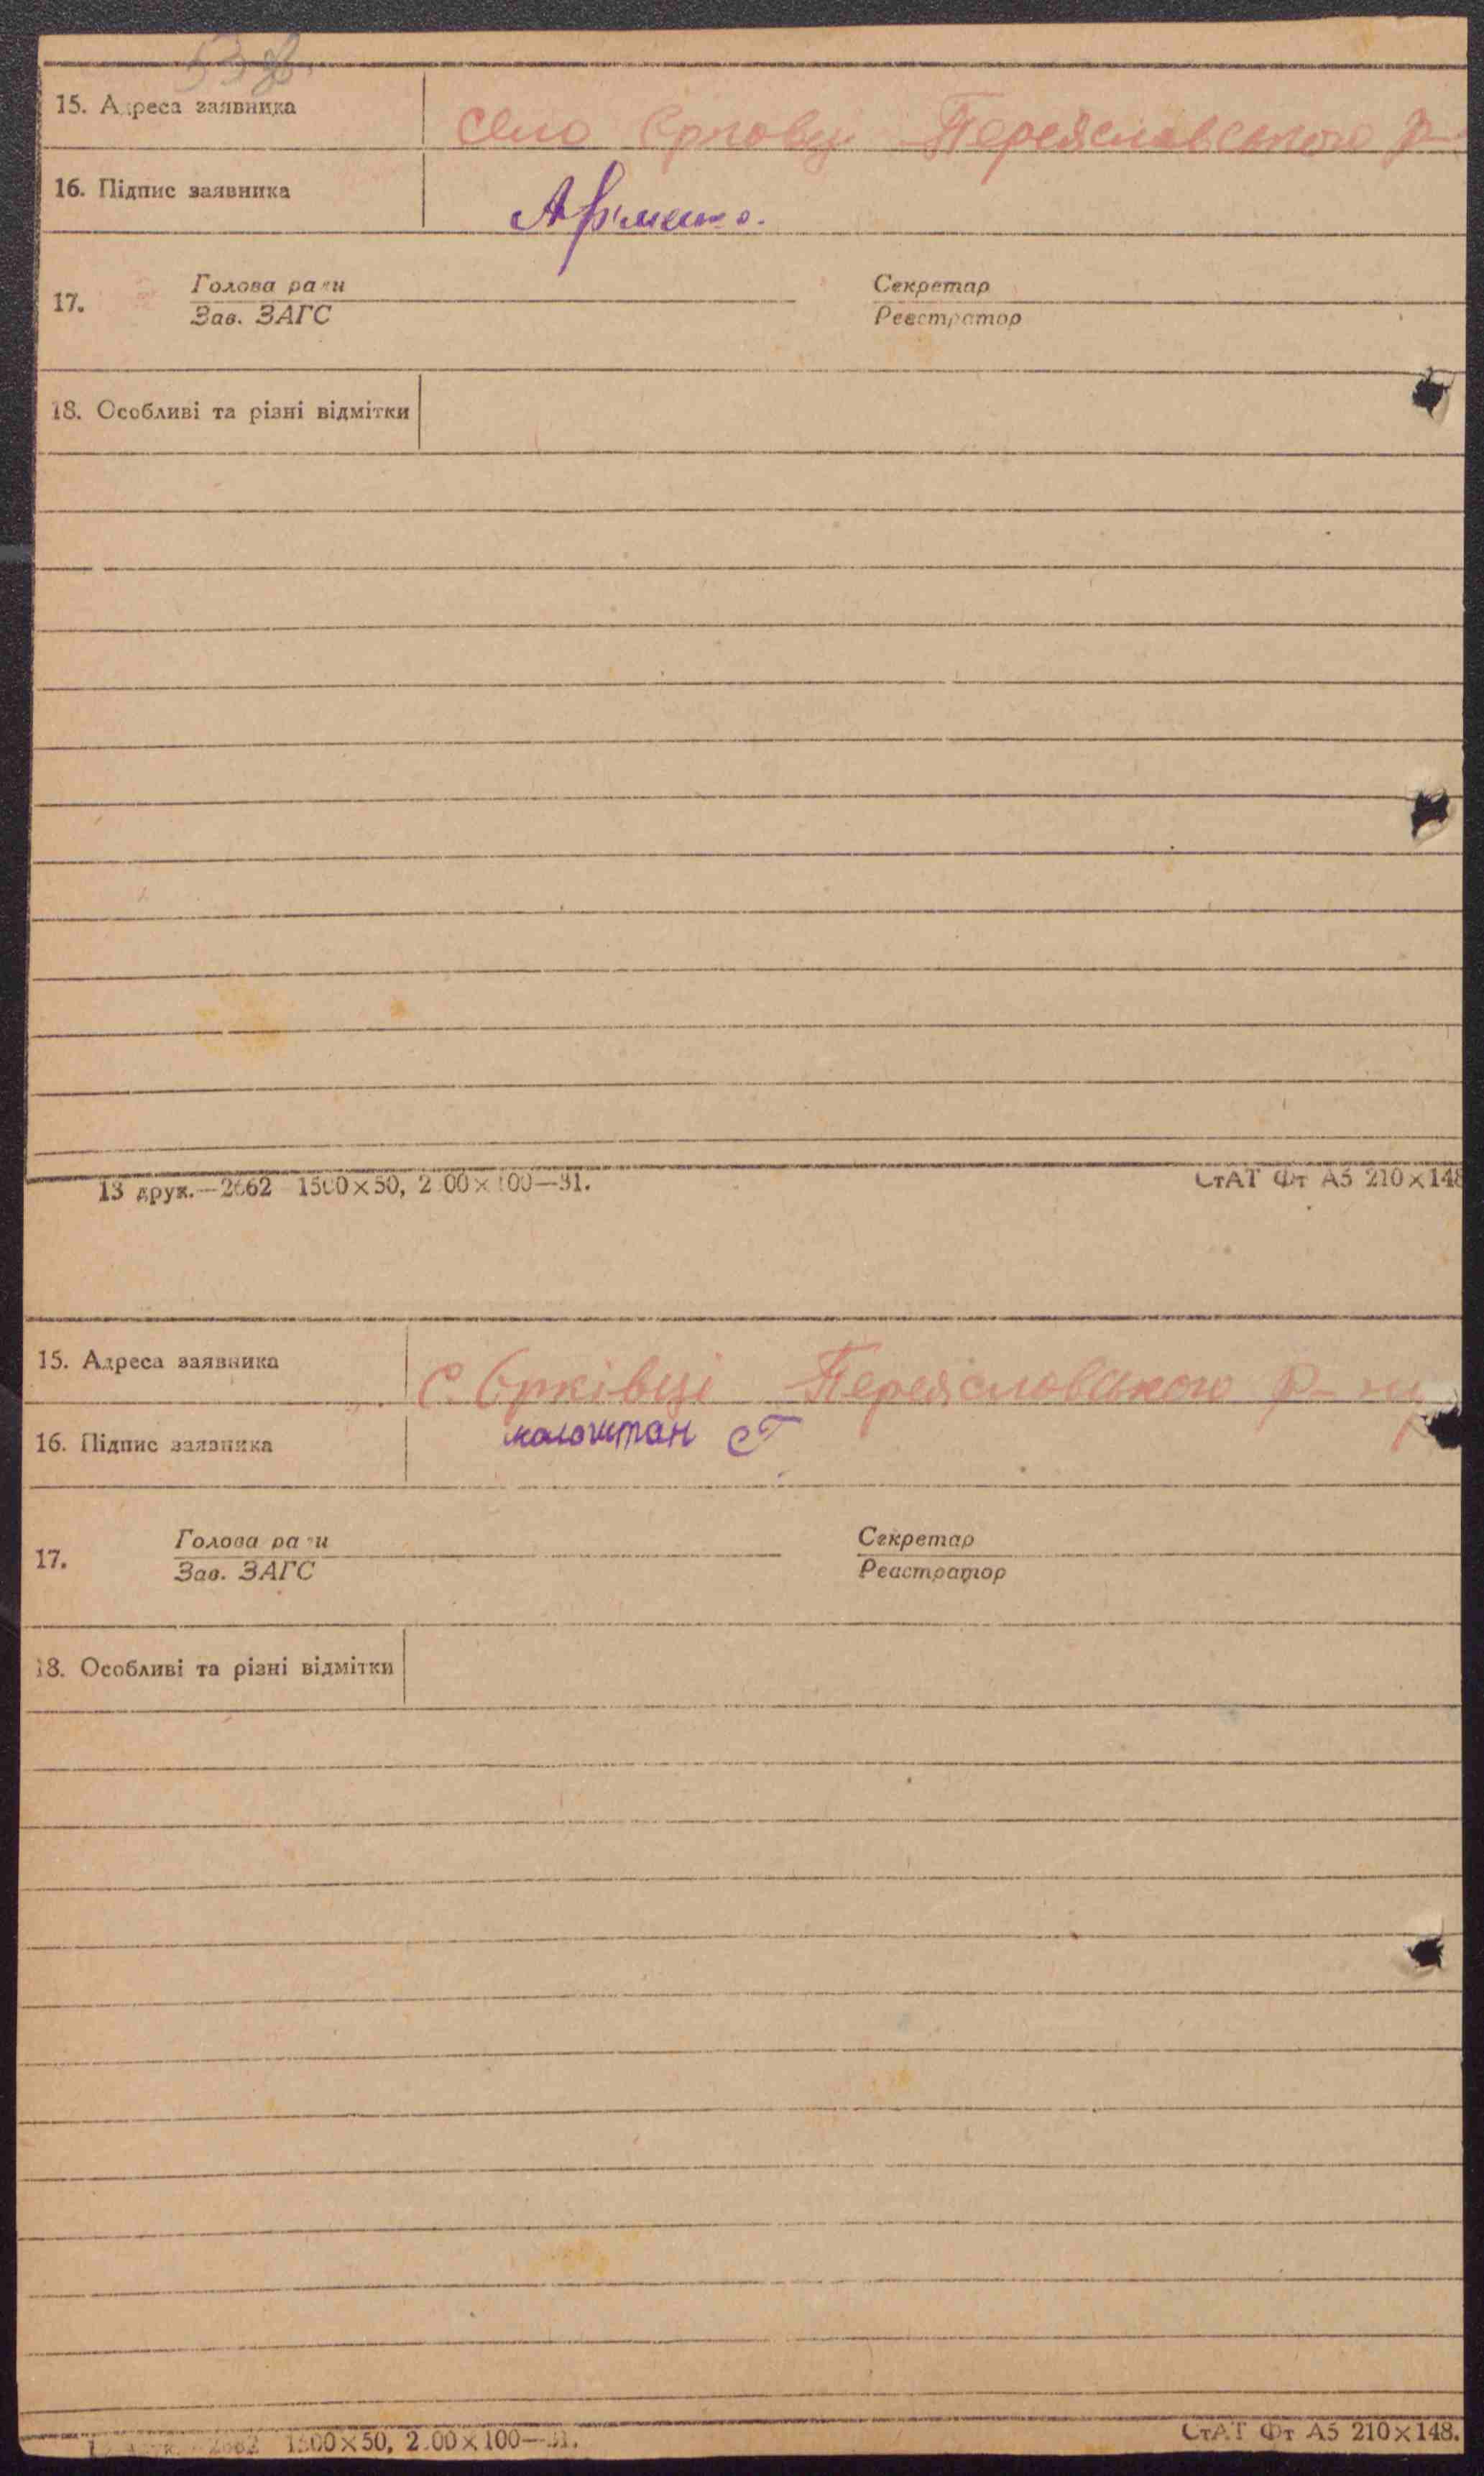 53 зв.
15. Адреса заявника село Єрковці Переяславського р-
16. Підпис заявника
17. Голова ради Секретар
Зав. ЗАГС Реєстратор
18. Особливі та різні відмітки
13 друк.—2662 1500×50, 2 00×100—31. СтАТ Фт А5 210×148
15. Адреса заявника С. Єрківці Переяславського р-ну
16. Підпис заявника калаштан Є Г
17. Голова ради Секретар
Зав. ЗАГС Реєстратор
18. Особливі та різні відмітки
2662 1500×50, 2.00×100—31. СтАТ Фт А5 210×148.